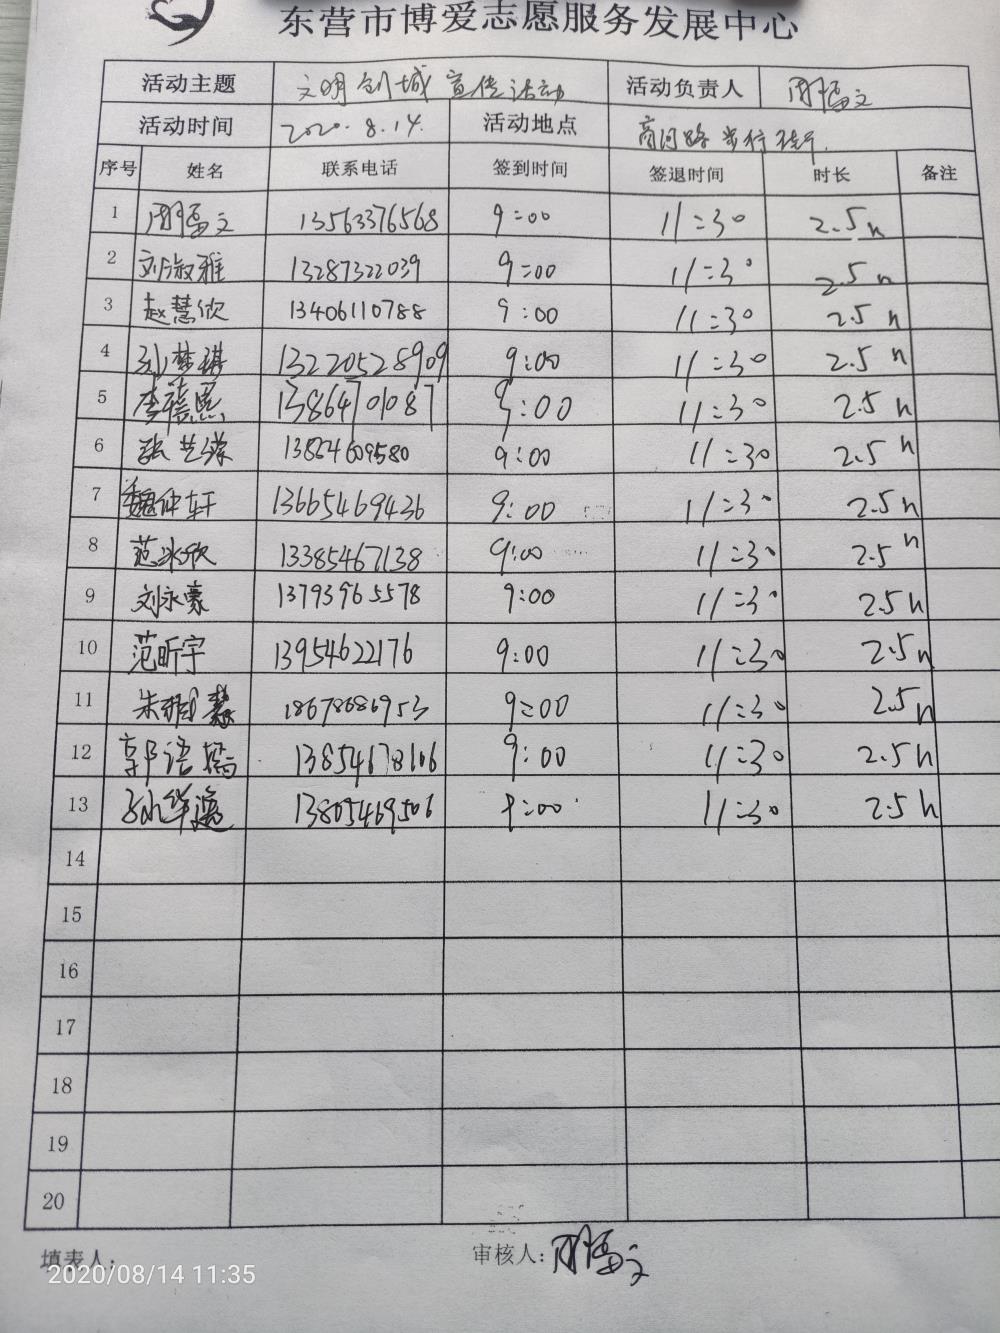 东营市博爱志愿服务发展中心
活动主题 文明创城宣传活动 活动负责人 周福文
活动时间 2020.8.14. 活动地点 商河路步行街.
序号 姓名 联系电话 签到时间 签退时间 时长 备注
1 周福文 13563376568 9:00 11:30 2.5h
2 刘淑雅 13287322039 9:00 11:30 2.5h
3 赵慧欣 13406110788 9:00 11:30 2.5h
4 孙梦琪 13220528909 9:00 11:30 2.5h
5 李 13864701087 9:00 11:30 2.5h
6 张艺 13864609580 9:00 11:30 2.5h
7 魏仲轩 13665469436 9:00 11:30 2.5h
8 范冰欣 13385467138 9:00 11:30 2.5h
9 刘永豪 13793965578 9:00 11:30 2.5h
10 范昕宇 13954622176 9:00 11:30 2.5h
11 朱雅慧 18678686953 9:00 11:30 2.5h
12 郭语 13854678106 9:00 11:30 2.5h
13 13805469506 9:00 11:30 2.5h
14
15
16
17
18
19
20
填表人: 审核人: 周福文
2020/08/14 11:35